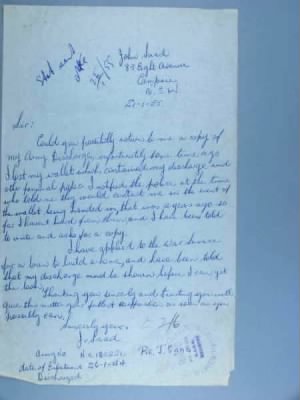 John Saad
83 Eagle Avenue
Campsie
N.S.W.
Sir:
Could you possibly return to me a copy of
my Army Discharge, unfortunately some time ago
I lost my wallet which contained my discharge and
other personal papers. I notified the police, at the time
who told me they would contact me in the event of
the wallet being handed in, that was a years ago so
far I haven't heard from them, and I have been told
to write and ask for a copy.
I have applied to the War Service
for a loan to build a home, and have been told
that my discharge must be shown before I can get
the loan.
Thanking you sincerely and trusting you will
give this matter your as soon as you
possibly can,
Sincerely yours,
J. Saad
2/6
Army No
date of 26-1-44
Discharged